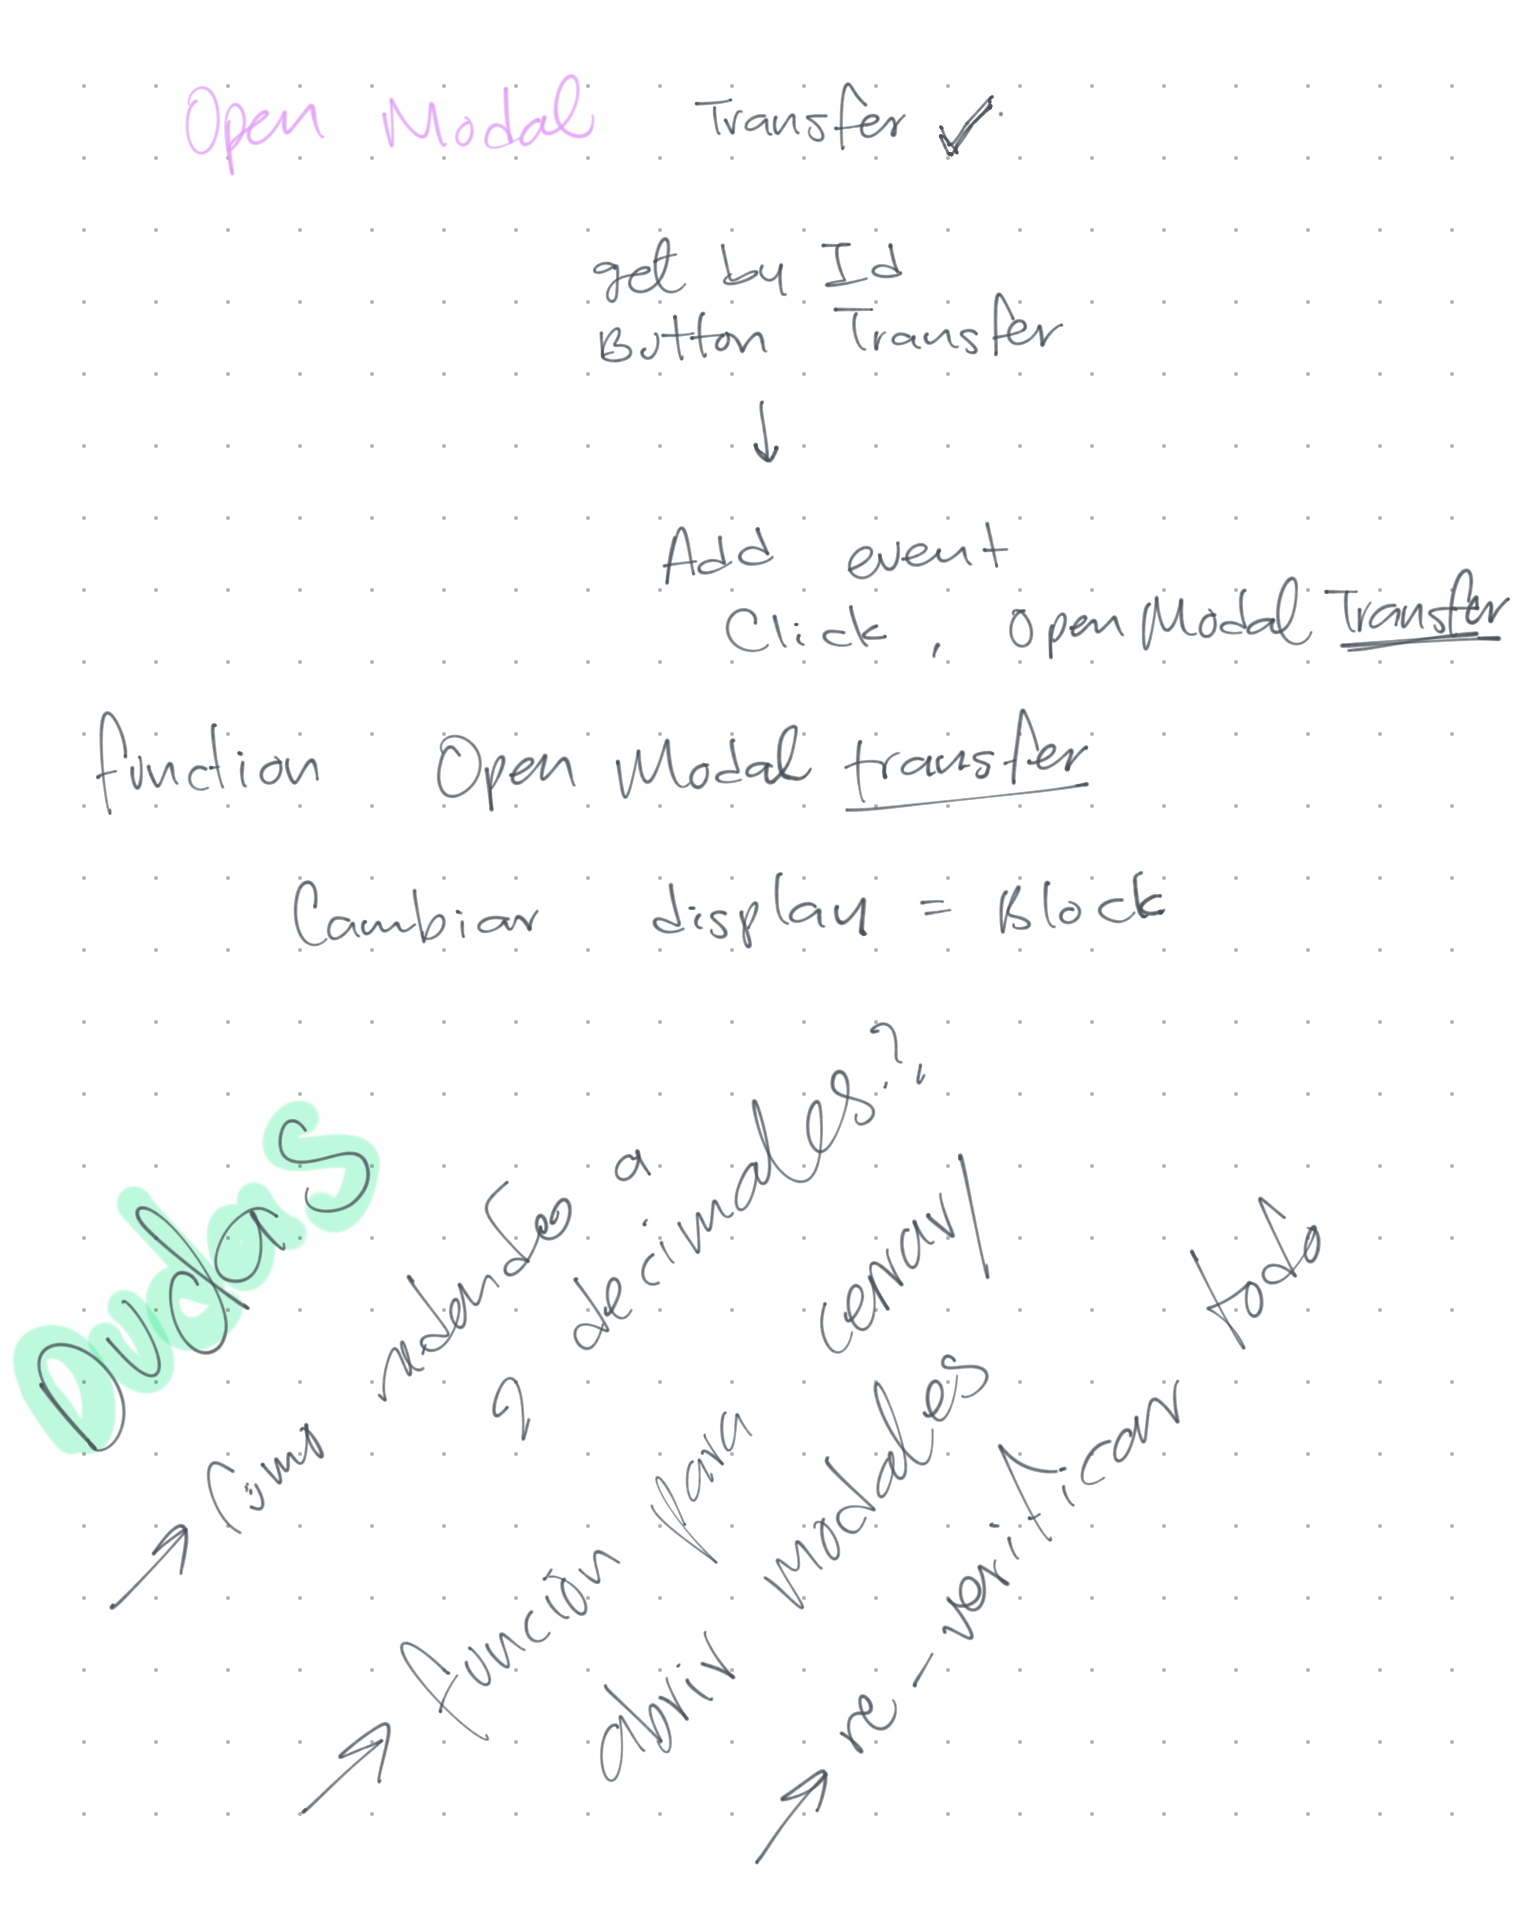 Open Modal Transfer ✓
get by Id
Button Transfer
↓
Add event
Click, Open Modal Transfer
function Open Modal transfer
Cambiar display = Block
Dudas
→ Como redondeo a
2 decimales?
→ función para cerrar/
abrir modales
→ re-verificar todo